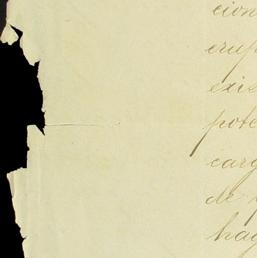 cion
erup
exis
pote
carg
de
hag